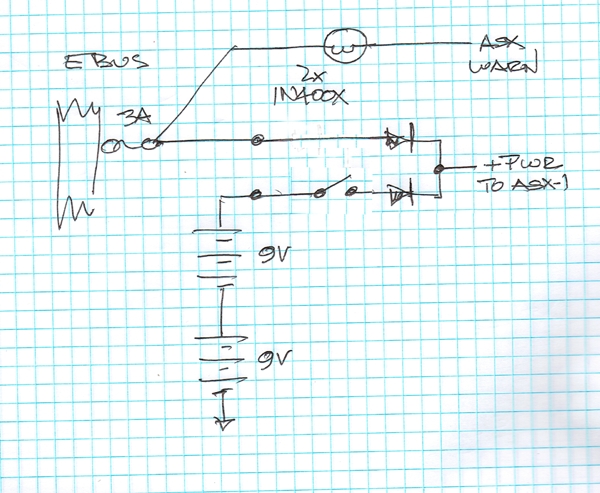 EBUS
3A
ASX
WARN
2x
1N400X
+PWR
TO ASX-1
9V
9V